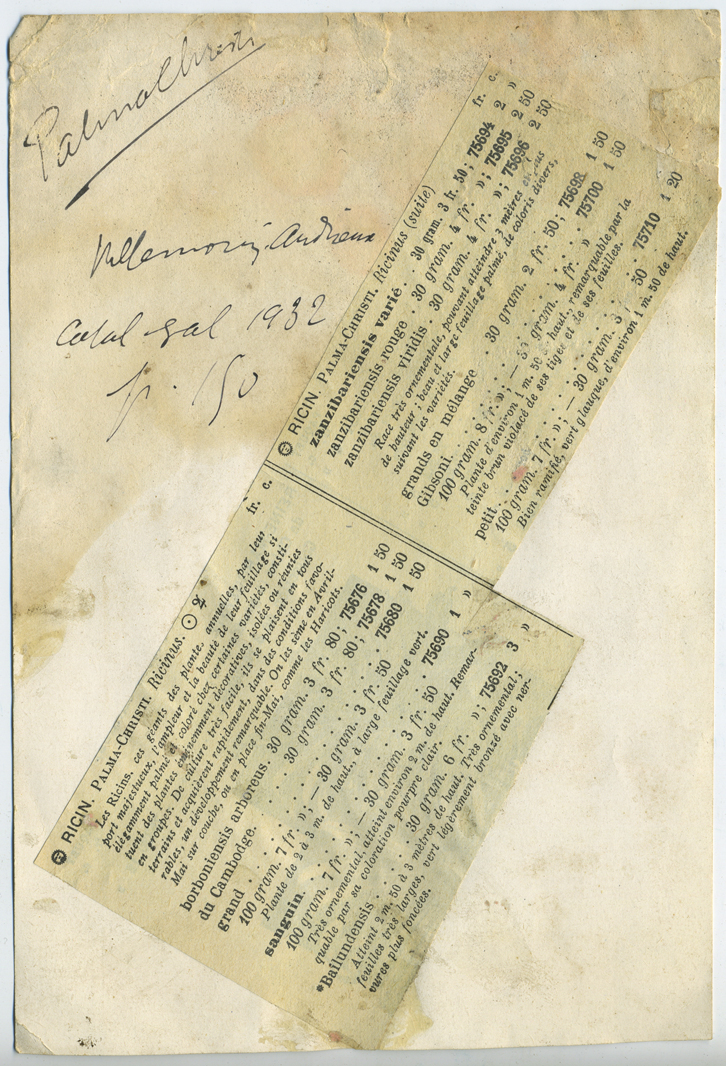 Palma Christi
Vilmorin, Andrieux
Catal gal 1932
p. 150
RICIN. PALMA-CHRISTI. Ricinus. ☉ ♃
fr. c.
Les Ricins, ces géants des plante, annuelles, par leur
port majestueux, l'ampleur et la beauté de leur feuillage si
élégamment palmé et coloré chez certaines variétés, consti-
tuent des plantes éminemment décoratives, isolées ou réunies
en groupes. De culture très facile, ils se plaisent en tous
terrains et acquièrent rapidement, dans des conditions favo-
rables, un développement remarquable. On les sème en Avril-
Mai sur couche, ou en place fin-Mai, comme les Haricots.
borboniensis arboreus. 30 gram. 3 fr. 80; 75676 1 50
du Cambodge. . . . . 30 gram. 3 fr. 80; 75678 1 50
grand . . . . . . . . . . . . 75680 1 50
100 gram. 7 fr. »; — 30 gram. 3 fr. 50
Plante de 2 à 3 m. de haut., à large feuillage vert.
sanguin. . . . . . . . . . . 75690 1 »
100 gram. 7 fr. »; — 30 gram. 3 fr. 50
Très ornemental, atteint environ 2 m. de haut. Remar-
quable par sa coloration pourpre clair.
*Bailundensis . . . . . 30 gram. 6 fr. »; 75692 3 »
Atteint 2 m. 50 à 3 mètres de haut. Très ornemental;
feuilles très larges, vert légèrement bronzé avec ner-
vures plus foncées.
RICIN. PALMA-CHRISTI. Ricinus (suite)
fr. c.
zanzibariensis varié. . . 30 gram. 3 fr. 50; 75694 2 »
zanzibariensis rouge . 30 gram. 4 fr. »; 75695 2 50
zanzibariensis viridis . 30 gram. 4 fr. »; 75696 2 50
Race très ornementale, pouvant atteindre 3 mètres et plus
de hauteur; beau et large feuillage palmé, de coloris divers,
suivant les variétés.
grands en mélange . . 30 gram. 2 fr. 50; 75698 1 50
Gibsoni. . . . . . . . . . . . 75700 1 50
100 gram. 8 fr. »; — 30 gram. 4 fr. »
Plante d'environ 1 m. 50 de haut, remarquable par la
teinte brun violacé de ses tiges et de ses feuilles.
petit . . . . . . . . . . . . 75710 1 20
100 gram. 7 fr. »; — 30 gram. 3 fr. 50
Bien ramifié, vert glauque, d'environ 1 m. 50 de haut.